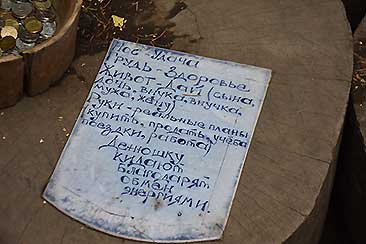 Нос - Удача
Грудь - Здоровье
Живот - Дай (сына,
мужа, жену)
пр. внука, внучка,
Руки - реальные планы
(купить, продать, учеба
поездки, работа)
Денюшку
кидают
благодарят.
обмен
энергиями.